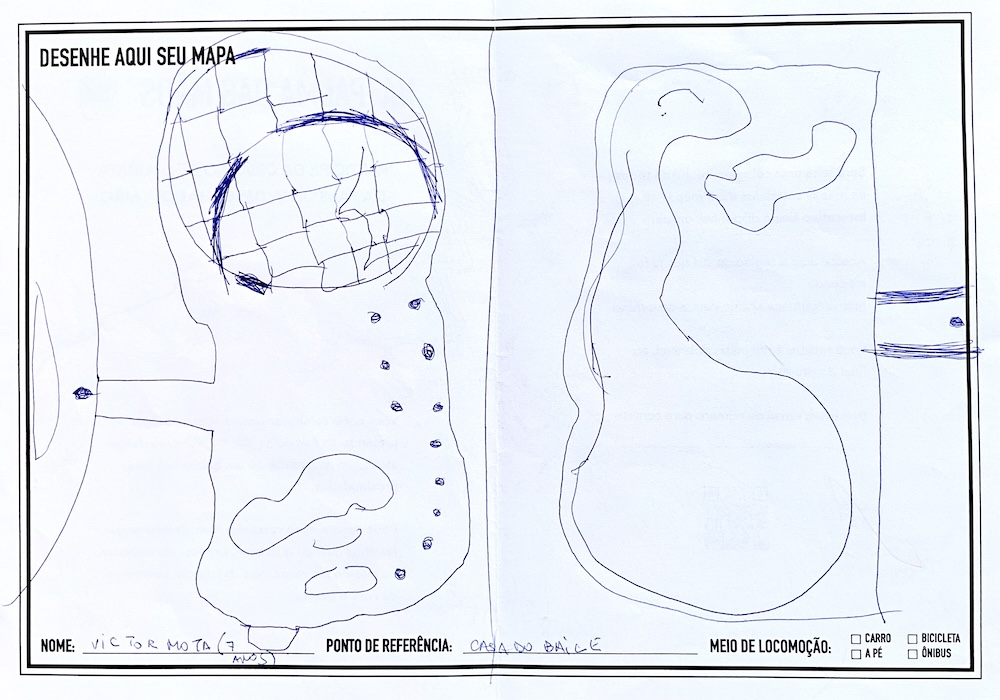 DESENHE AQUI SEU MAPA
NOME: VICTOR MOTA (7 ANOS) PONTO DE REFERÊNCIA: CASA DO BAILE MEIO DE LOCOMOÇÃO:
CARRO BICICLETA
A PÉ ÔNIBUS